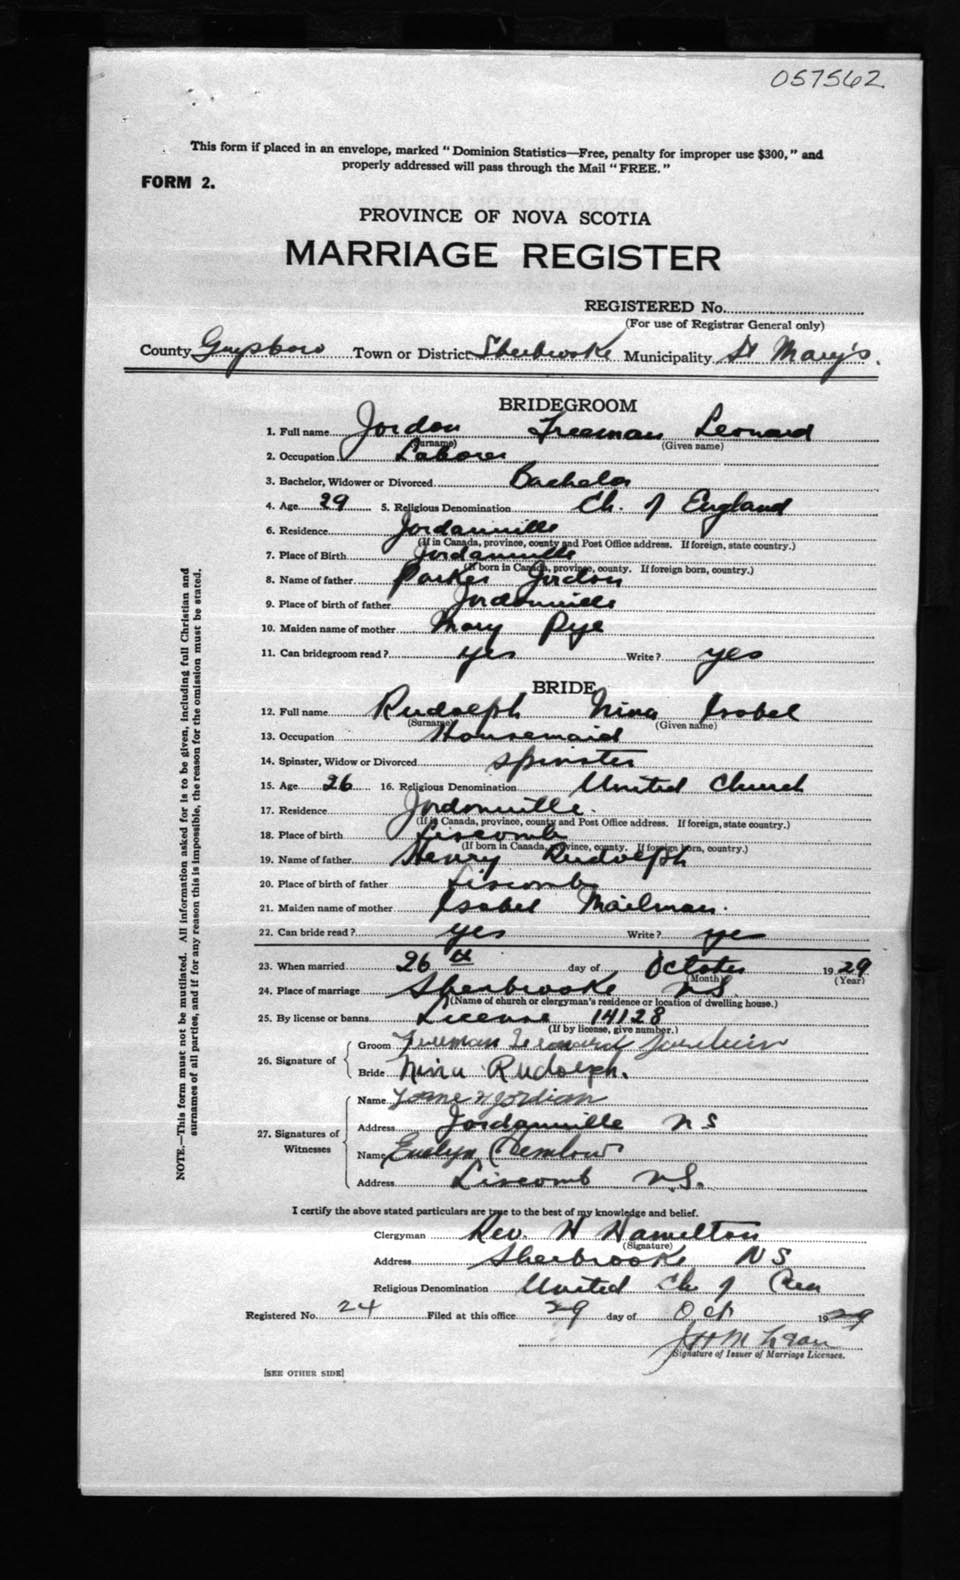 057562
This form if placed in an envelope, marked "Dominion Statistics—Free, penalty for improper use $300," and
properly addressed will pass through the Mail "FREE."
FORM 2.
PROVINCE OF NOVA SCOTIA
MARRIAGE REGISTER
REGISTERED No.
(For use of Registrar General only)
County Guysboro Town or District Sherbrooke Municipality St Mary's.
BRIDEGROOM
1. Full name Jordon Freeman Leonard
(Surname) (Given name)
2. Occupation Laborer
3. Bachelor, Widower or Divorced Bachelor
4. Age 29 5. Religious Denomination Ch. of England
6. Residence Jordanville
(If in Canada, province, county and Post Office address. If foreign, state country.)
7. Place of Birth Jordanville
(If born in Canada, province, county. If foreign born, country.)
8. Name of father Parker Jordon
9. Place of birth of father Jordonville
10. Maiden name of mother Mary Pye
11. Can bridegroom read? yes Write? yes
BRIDE
12. Full name Rudolph Nina Isobel
(Surname) (Given name)
13. Occupation Housemaid
14. Spinster, Widow or Divorced spinster
15. Age 26 16. Religious Denomination United Church
17. Residence Jordonville.
(If in Canada, province, county and Post Office address. If foreign, state country.)
18. Place of birth Liscomb
(If born in Canada, province, county. If foreign born, country.)
19. Name of father Henry Rudolph
20. Place of birth of father Liscomb
21. Maiden name of mother Isabel Mailman.
22. Can bride read? yes Write? yes
23. When married 26th day of October 1929
(Month) (Year)
24. Place of marriage Sherbrooke NS.
(Name of church or clergyman's residence or location of dwelling house.)
25. By license or banns License 14128
(If by license, give number.)
26. Signature of
Groom Freeman Leonard
Bride Nina Rudolph.
27. Signatures of Witnesses
Name
Address Jordanville NS
Name Evelyn
Address Liscomb N.S.
I certify the above stated particulars are true to the best of my knowledge and belief.
Clergyman Rev. H Hamilton
(Signature)
Address Sherbrooke NS
Religious Denomination United Ch of Can
Registered No. 24 Filed at this office 29 day of Oct 1929
Signature of Issuer of Marriage Licenses.
[SEE OTHER SIDE]
NOTE.—This form must not be mutilated. All information asked for is to be given, including full Christian and
surnames of all parties, and if for any reason this is impossible, the reason for the omission must be stated.